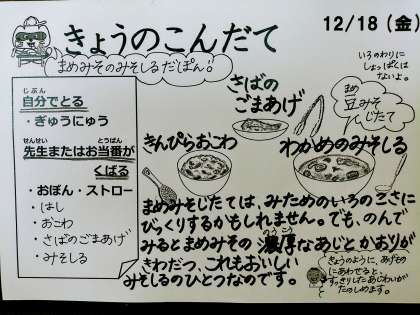 きょうのこんだて
12/18(金)
まめみそのみそしるだぽん!
いろのわりに
しょっぱくは
ないよ。
まめ
豆みそ
じたて
じぶん
自分でとる
・ぎゅうにゅう
せんせい とうばん
先生またはお当番が
くばる
・おぼん・ストロー
・はし
・おこわ
・さばのごまあげ
・みそしる
さばの
ごまあげ
きんぴらおこわ
わかめのみそしる
まめみそじたては、みためのいろのこさに
びっくりするかもしれません。でも、のんで
みるとまめみその濃厚なあじとかおりが
のうこう
きわだつ、これもおいしい
みそしるのひとつなのです。
きょうのように、あげもの
にあわせると、
すっきりしたあじわいが
たのしめます。